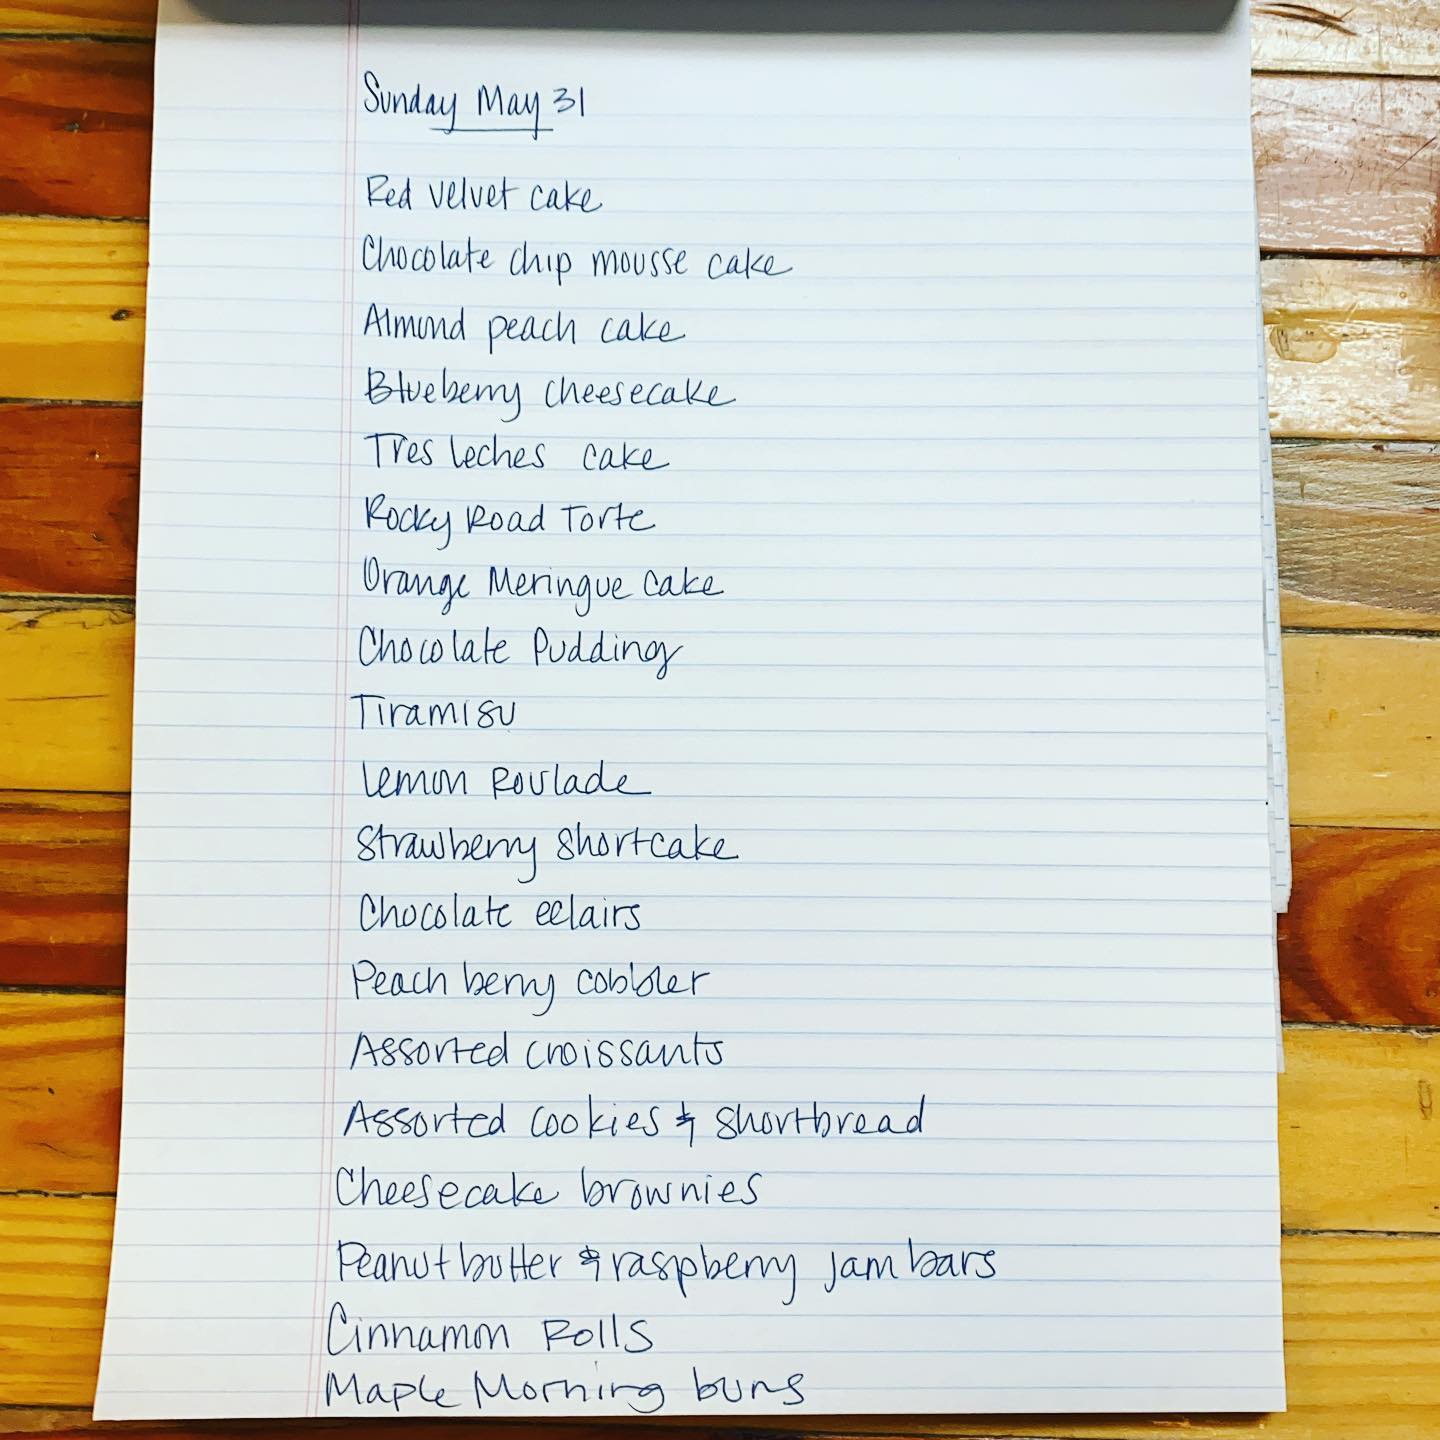 Sunday May 31
Red velvet cake
Chocolate chip mousse cake
Almond peach cake
Blueberry cheesecake
Tres leches cake
Rocky Road Torte
Orange Meringue Cake
Chocolate Pudding
Tiramisu
Lemon Roulade
Strawberry Shortcake
Chocolate eclairs
Peach berry cobbler
Assorted croissants
Assorted cookies & shortbread
Cheesecake brownies
Peanut butter & raspberry jam bars
Cinnamon Rolls
Maple Morning buns